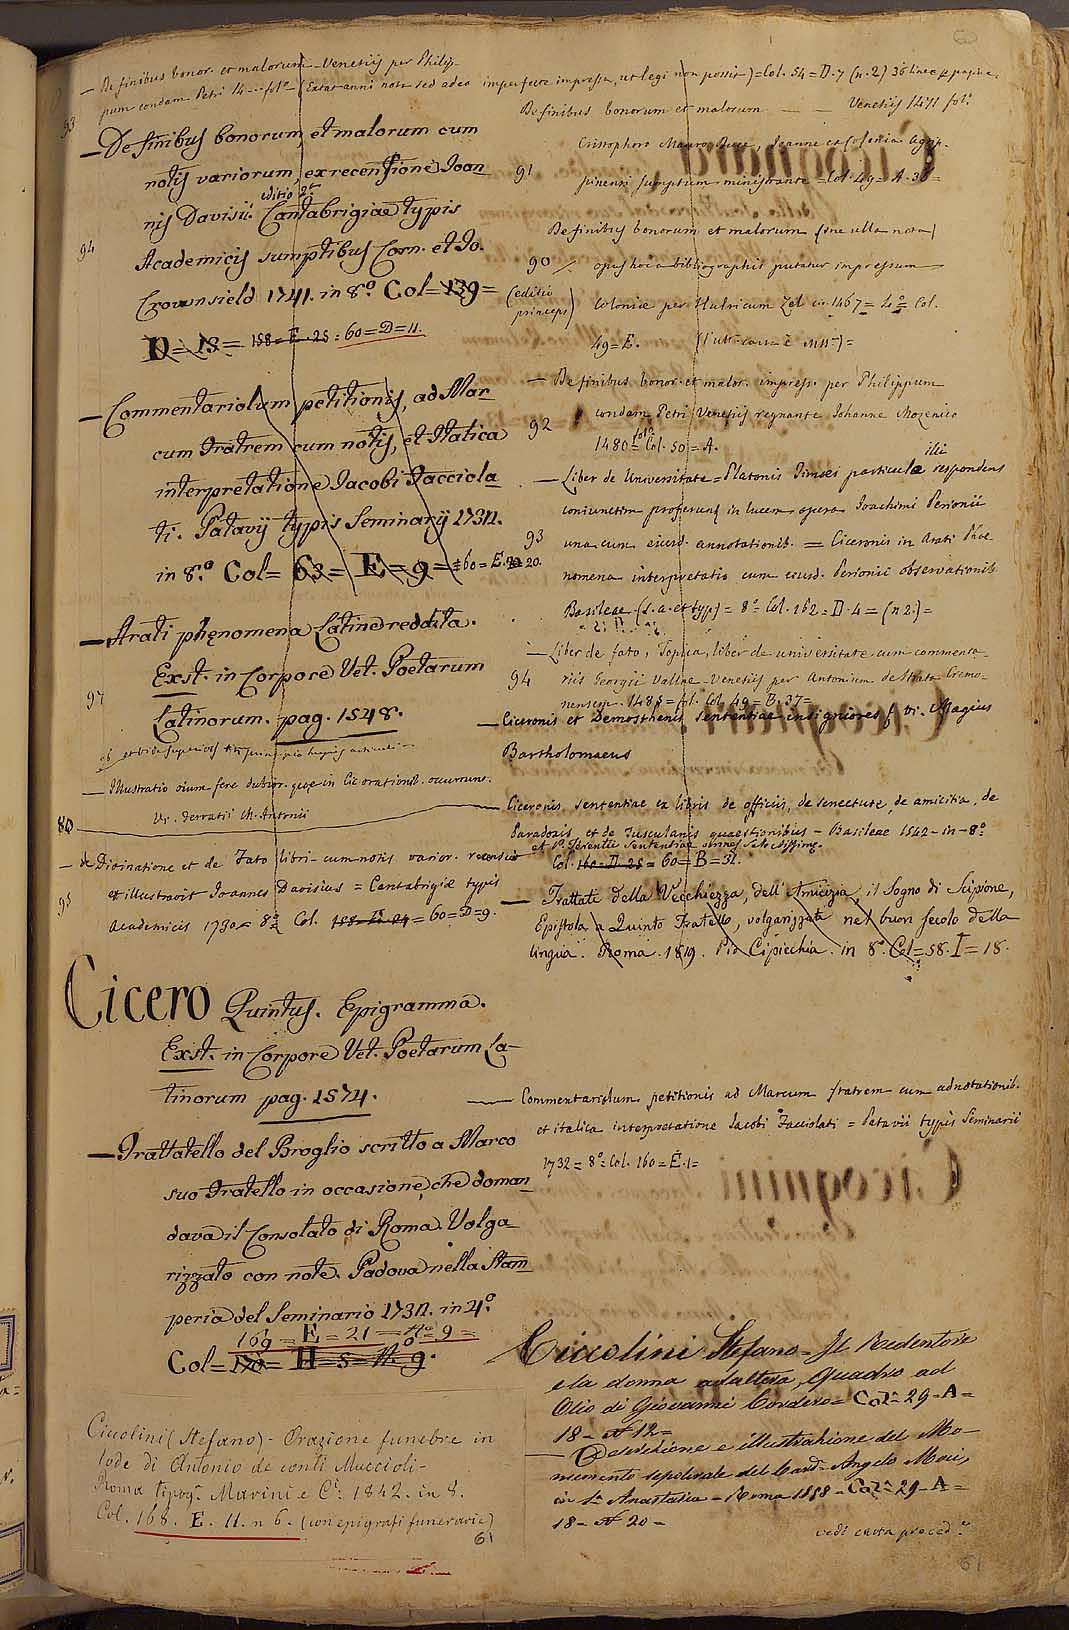 — De finibus bonor. et malorum – Venetiis per Philip-
pum condam Petri 14... fol.° – (Extat anni nota sed adeo imperfecte impressa, ut legi non possit) = Col. 54 = D. 7 (n. 2) 36 lineæ p. pagina.
93
— De finibus bonorum, et malorum cum
notis variorum, ex recensione Joan
editio 2.ª
nis Davisii. Cantabrigiæ typis
94
Academicis sumptibus Corn. et Jo.
Crownsield 1741. in 8.° Col = 139 =
D = 13 = 158 = E. 25 = 60 = D = 11.
— Commentariolum petitionis, ad Mar
cum Fratrem cum notis, et Italica
interpretatione Jacobi Facciola
ti. Patavij typis Seminarij 1732.
in 8.° Col = 63 = E = 9 = 160 = E. 20.
— Arati phęnomena Latine reddita.
Exst. in Corpore Vet. Poetarum
97
Latinorum. pag. 1548.
96
— Illustratio oium fere dubior. quæ in Cic orationib. occurrunt.
80
V. Ferratii M. Antonii
— de Divinatione et de Fato libri – cum notis varior. recensuit
95
et illustravit Joannes Davisius = Cantabrigiæ typis
Academicis 1730 = 8° Col. 158 = D. 24 = 60 = D = 9.
Cicero Quintus. Epigramma.
Exst. in Corpore Vet. Poetarum La-
tinorum pag. 1574.
— Trattatello del Broglio scritto a Marco
suo Fratello in occasione, che doman
dava il Consolato di Roma. Volga
rizzato con note. Padova nella Stam
peria del Seminario 1732. in 4.°
169 = E = 21 = N° = 9 =
Col = 170 = H = 5 = N. 9.
Ciccolini (Stefano) – Orazione funebre in
lode di Antonio de conti Muccioli –
Roma tipog. Marini e C. 1842. in 8.
Col. 168. E. 11. n 6. (con epigrafi funerarie)
61
De finibus bonorum et malorum — Venetiis 1471 fol.°
Cristophoro Mauro Duce, Joanne ex Colonia Agrip-
91
pinensi sumptum ministrante = Col. 49 = A. 38 =
De finibus bonorum et malorum (sine ulla nota)
90
opus hoc a bibliographis putatur impressum
(editio princeps)
Coloniæ per Hulricum Zel in 1467 = 4.° = Col.
49 = E.
— De finibus bonor. et malor. impress. per Philippum
condam Petri Venetiis regnante Johanne Mozenico
92
1480 = fol.° Col. 50 = A.
illi
— Liber de Universitate = Platonis Timæi particulæ respondens
coniunctim proferunt in lucem opera Joachimi Perionii
93
una cum eiusd. annotationib. = Ciceronis in Arati Phæ
nomena interpretatio cum eiusd. Perionii observationib.
Basileæ (s. a. et typ) = 8° Col. 162 = D. 4 = (n 2.) =
— Liber de fato, Topica, liber de universitate cum commenta-
94
riis Georgii Vallæ – Venetiis per Antonium de Strata Cremo-
nensem. 1485 = fol. Col. 49 = B. 37 =
— Ciceronis et Demosthenis Sententiae insigniores f V. Magius
Bartholomaeus
— Ciceronis, Sententiae ex libris de officiis, de senectute, de amicitia, de
Paradoxis, et de Tusculanis quaestionibus – Basileae 1542 – in – 8°
et P. Terentii Sententiae omnes selectissime.
Col. 160 = D. 25 = 60 = B = 31.
— Trattati della Vecchiezza, dell'Amicizia, il Sogno di Scipione,
Epistola a Quinto Fratello, volgarizzata nel buon secolo della
lingua. Roma. 1819. Pio Cipicchia. in 8.° Col = 58. I = 18.
— Commentariolum petitionis ad Marcum fratrem cum adnotationib.
et italica interpretatione Jacobi Facciolati = Patavii typis Seminarii
1732 = 8° = Col. 160 = E. 1 =
Ciccolini Stefano – Il Redentore
e la donna adultera, Quadro ad
Olio di Giovanni Cordero = Col. 29 – A =
18 – N° 12 =
— Descrizione e illustrazione del Mo-
numento sepolcrale del Card. Angelo Mai,
in S. Anastasia – Roma 1858 – Col. 29 – A =
18 – N° 20 –
vedi carta preced.e
61